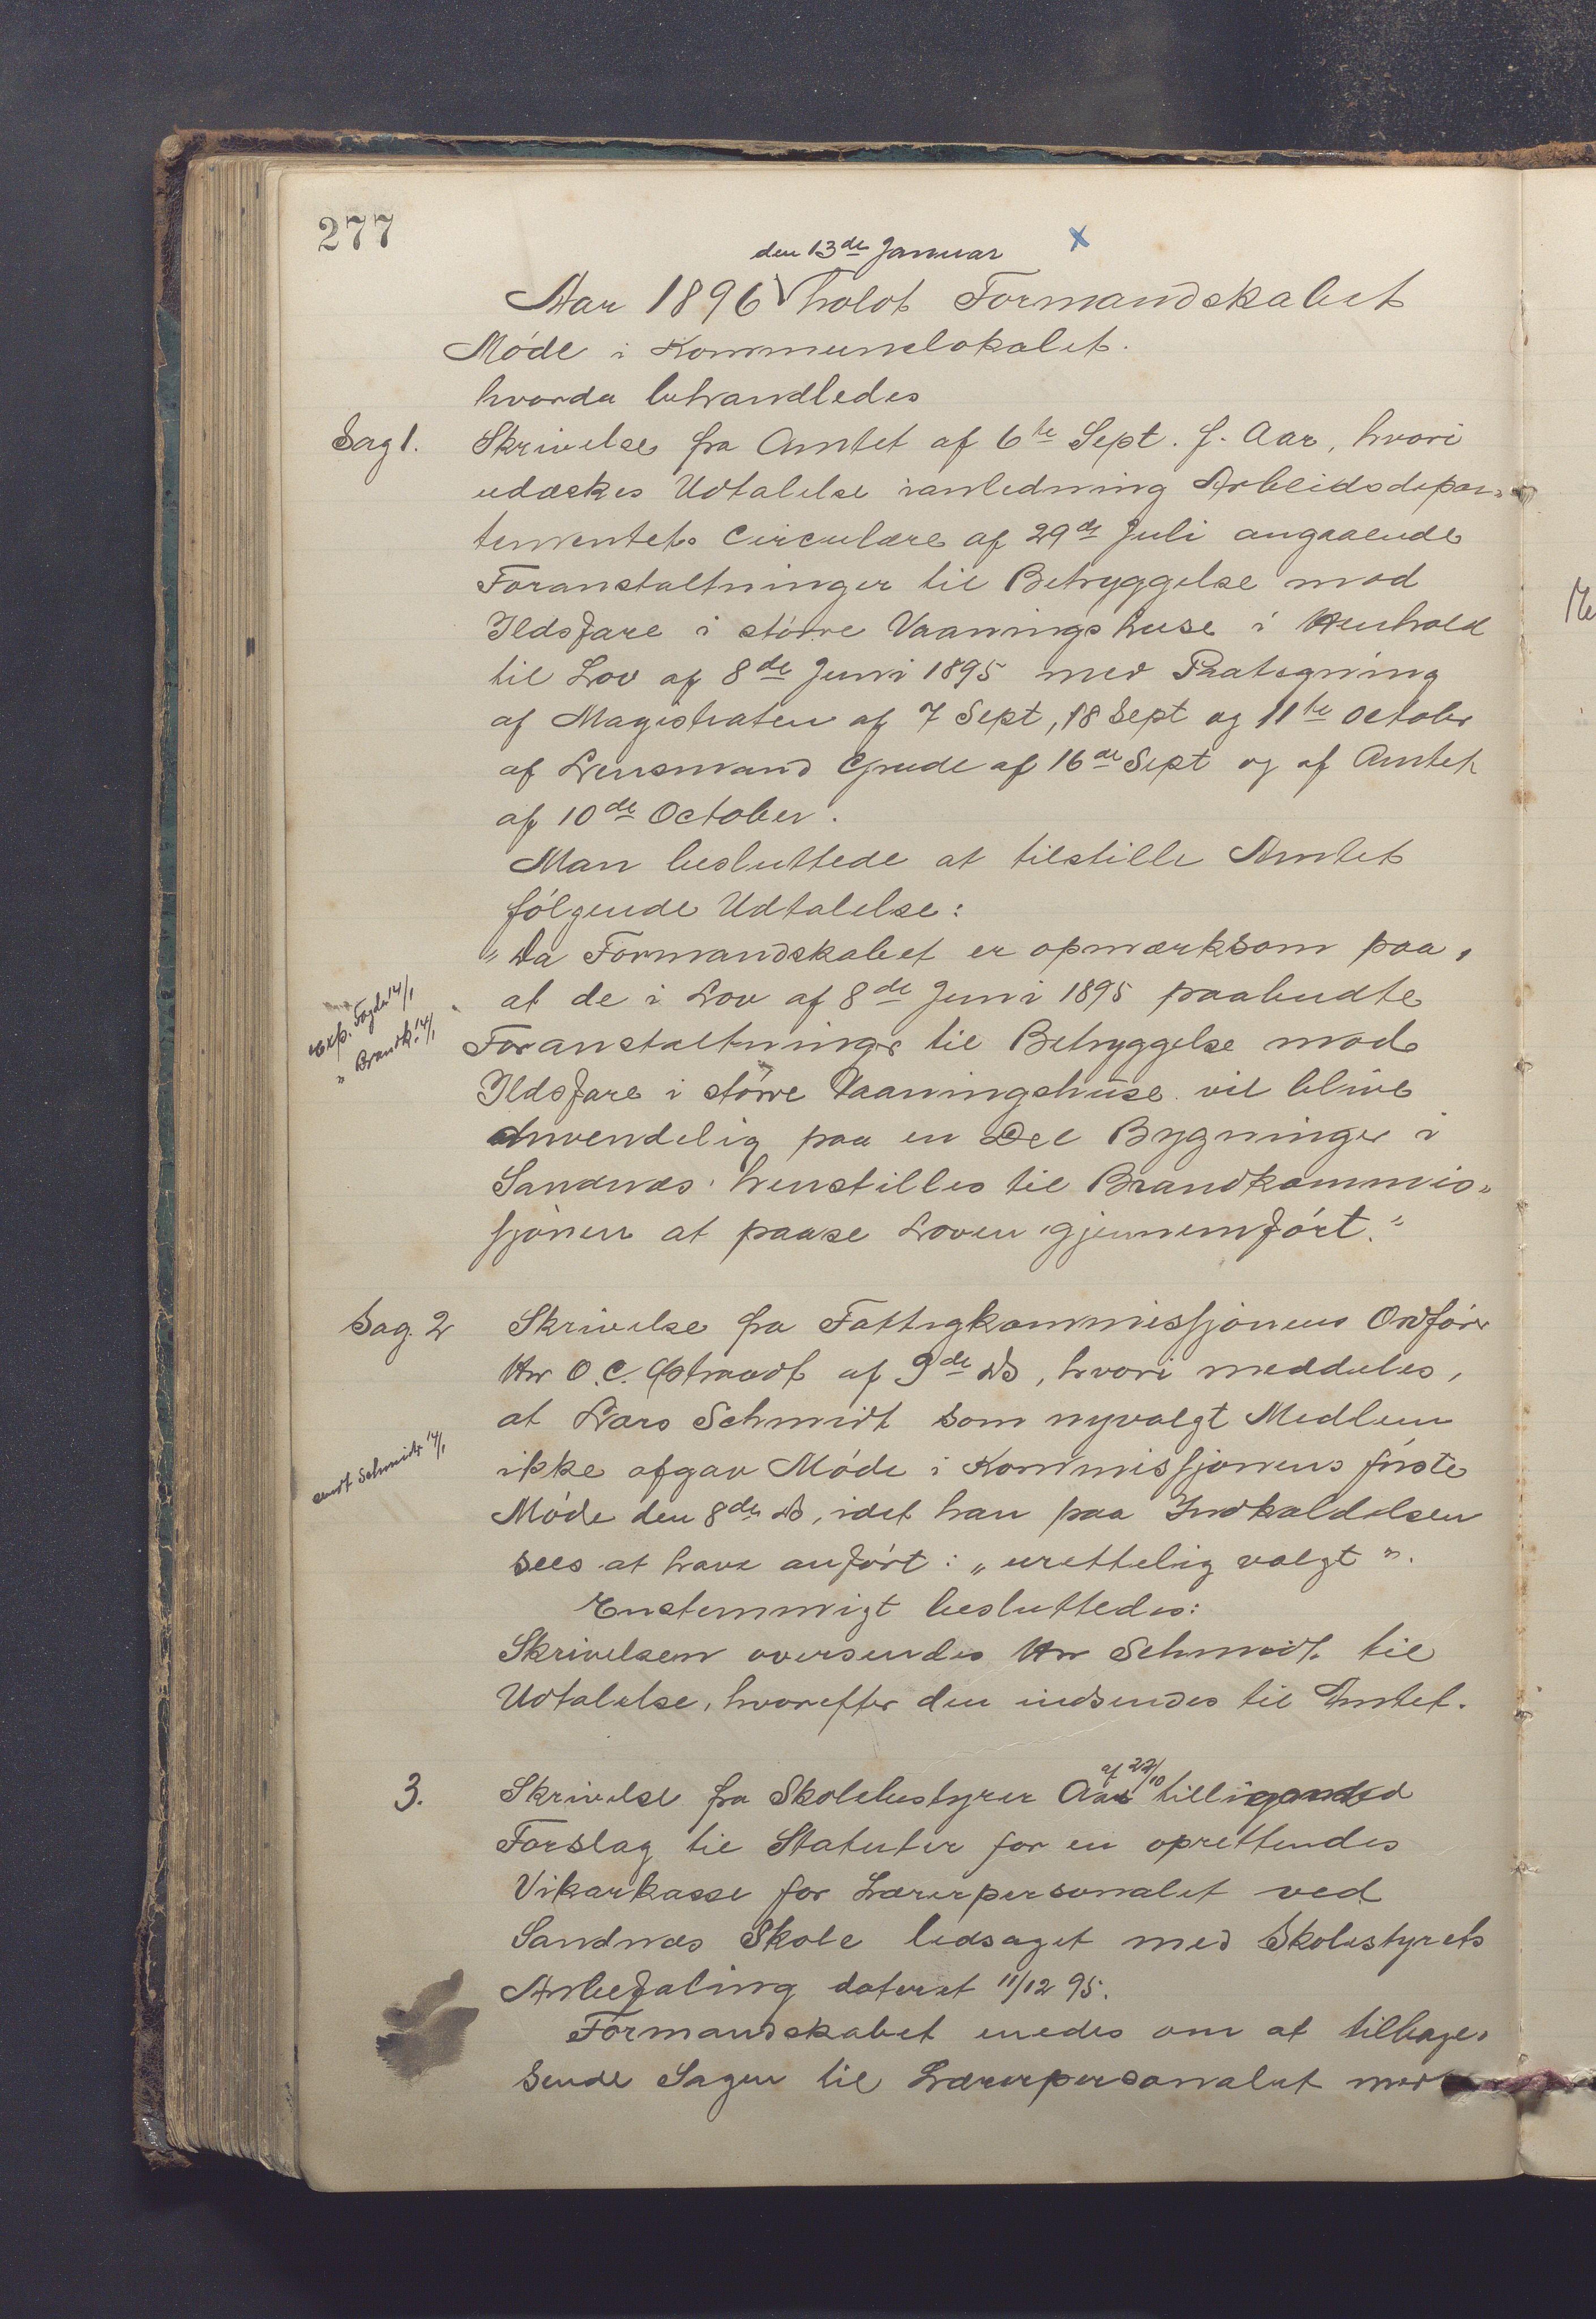 277
den 13de Januar
Aar 1896 holdt Formandskabet
Møde i Kommunelokalet.
hvorda behandledes
Sag 1. Skrivelse fra Amtet af 6te Sept. f. Aar, hvori
udæskes Udtalelse ianledning Arbeidsdepar-
tementets Circulære af 29de Juli angaaende
Foranstaltninger til Betryggelse mod
Ildsfare i større Vaaningshuse i Henhold
til Lov af 8de Juni 1895 med Paategning
af Magistraten af 7 Sept, 18 Sept og 11te October
af Lensmand Grude af 16de Sept og af Amtet
af 10de October.
Man besluttede at tilstille Amtet
følgende Udtalelse:
"Da Formandskabet er opmærksom paa,
at de i Lov af 8de Juni 1895 paabudte
Exp. Fogda 14/1
" Brandk. 14/1
Foranstaltninger til Betryggelse mod
Ildsfare i større Vaaningshuse vil blive
Anvendelig paa en Del Bygninger i
Sandnæs, henstilles til Brandkommis-
sjonen at paase Loven gjennemført."
Sag. 2 Skrivelse fra Fattigkommissjonens Ordfører
Hr O. C. Gstraadt af 9de ds, hvori meddeles,
at Lars Schmidt som nyvalgt Medlem
sendt Schmidt 14/1
ikke afgav Møde i Kommissjonens første
Møde den 8de ds, idet han paa Indkaldelsen
sees at have anført: "urettelig valgt".
Enstemmigt besluttedes:
Skrivelsen oversendes Hr Schmidt til
Udtalelse, hvorefter den indsendes til Amtet.
af 22/10
3. Skrivelse fra Skolebestyrer Aas tilligemed
Forslag til Statuter for en oprettendes
Vikarkasse for Lærerpersonalet ved
Sandnæs Skole ledsaget med Skolestyrets
Anbefaling dateret 11/12 95.
Formandskabet enedes om at tilbage-
sende Sagen til Lærerpersonalet med